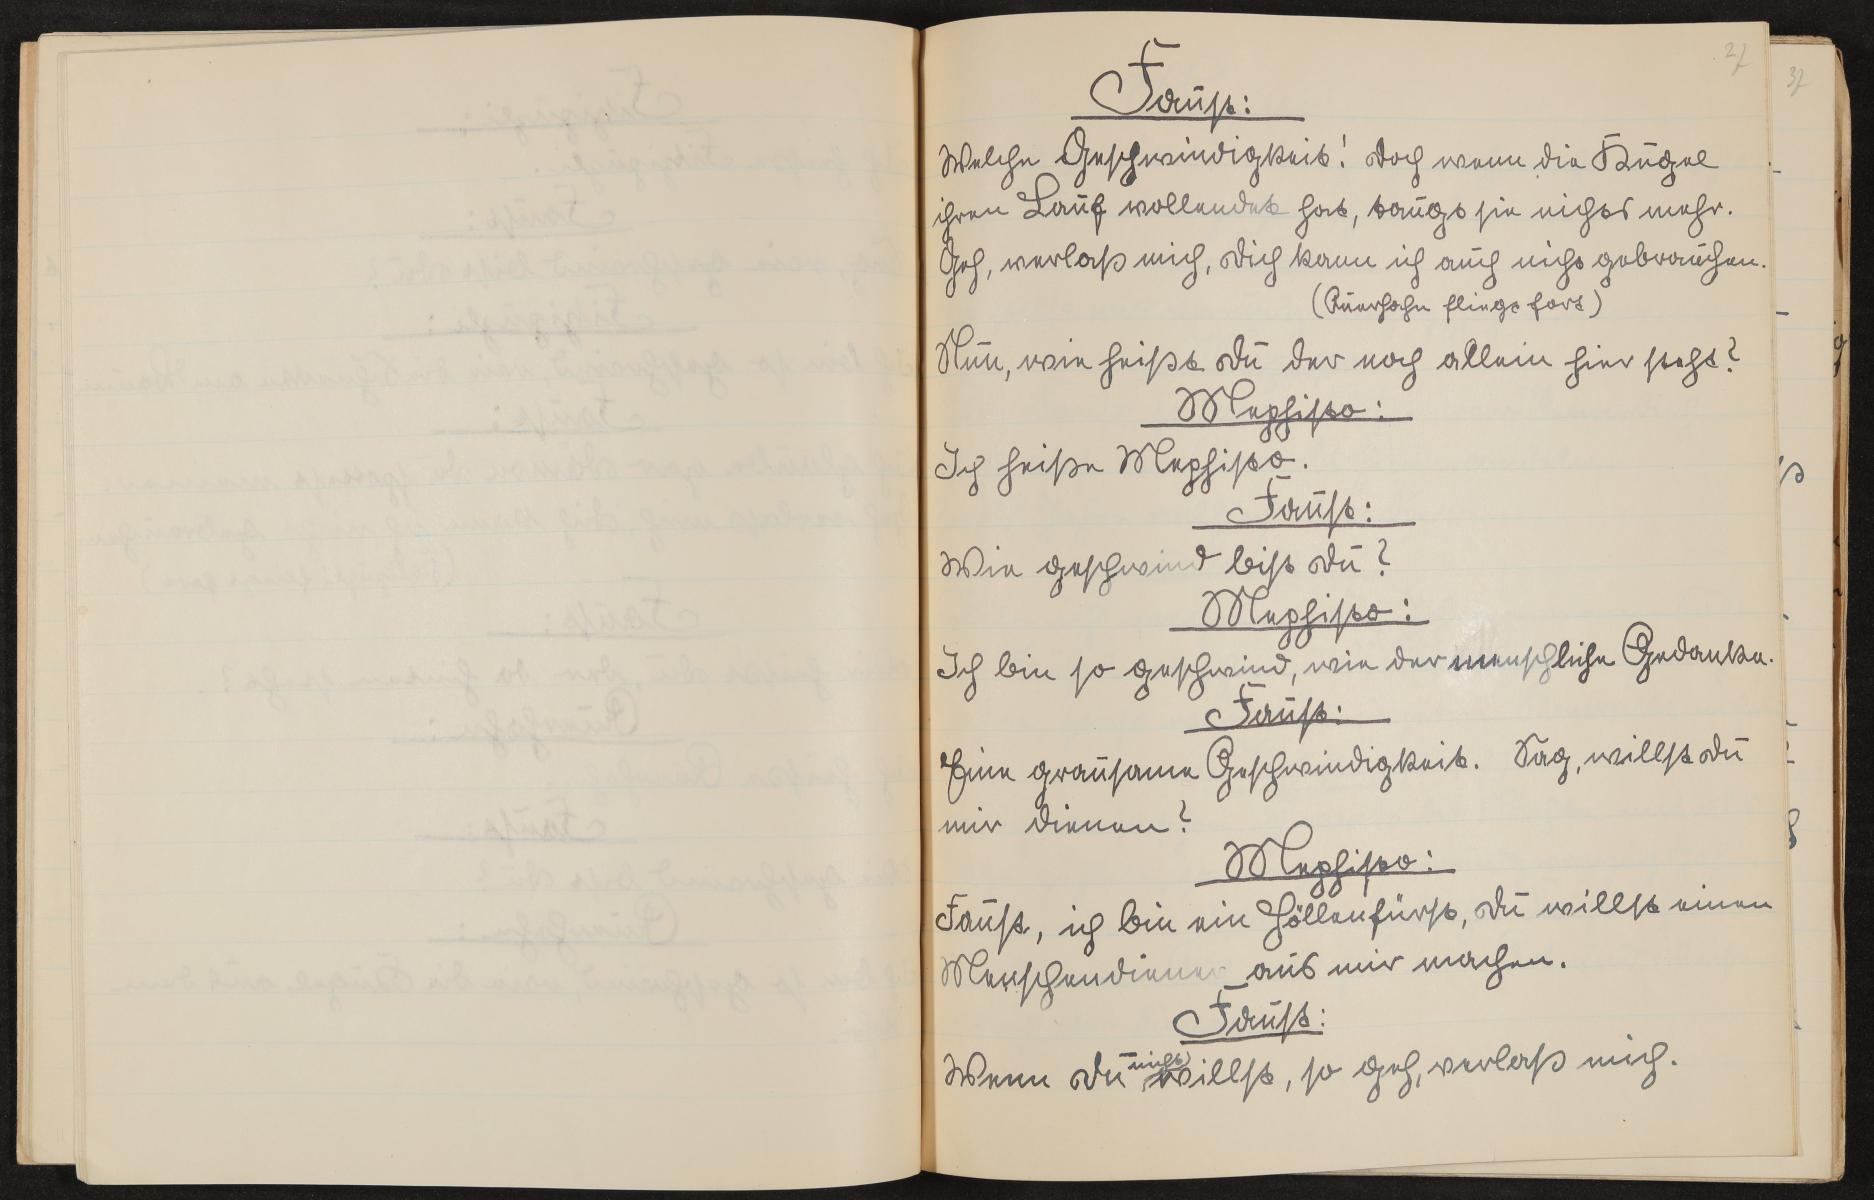 27
37
Faust:
Welche Geschwindigkeit! Doch wenn die Kugel
ihren Lauf vollendet hat, taugt sie nichts mehr.
Geh, verlaß mich, dich kann ich auch nicht gebrauchen.
(Auerhahn fliegt fort)
Nun, wie heißt du der noch allein hier steht?
Mephisto:
Ich heiße Mephisto.
Faust:
Wie geschwind bist du?
Mephisto:
Ich bin so geschwind, wie der menschliche Gedanke.
Faust:
Eine grausame Geschwindigkeit. Sag, willst du
mir dienen?
Mephisto:
Faust, ich bin ein Höllenfürst, du willst einen
Menschendiener aus mir machen.
Faust:
Wenn du nicht willst, so geh, verlaß mich.